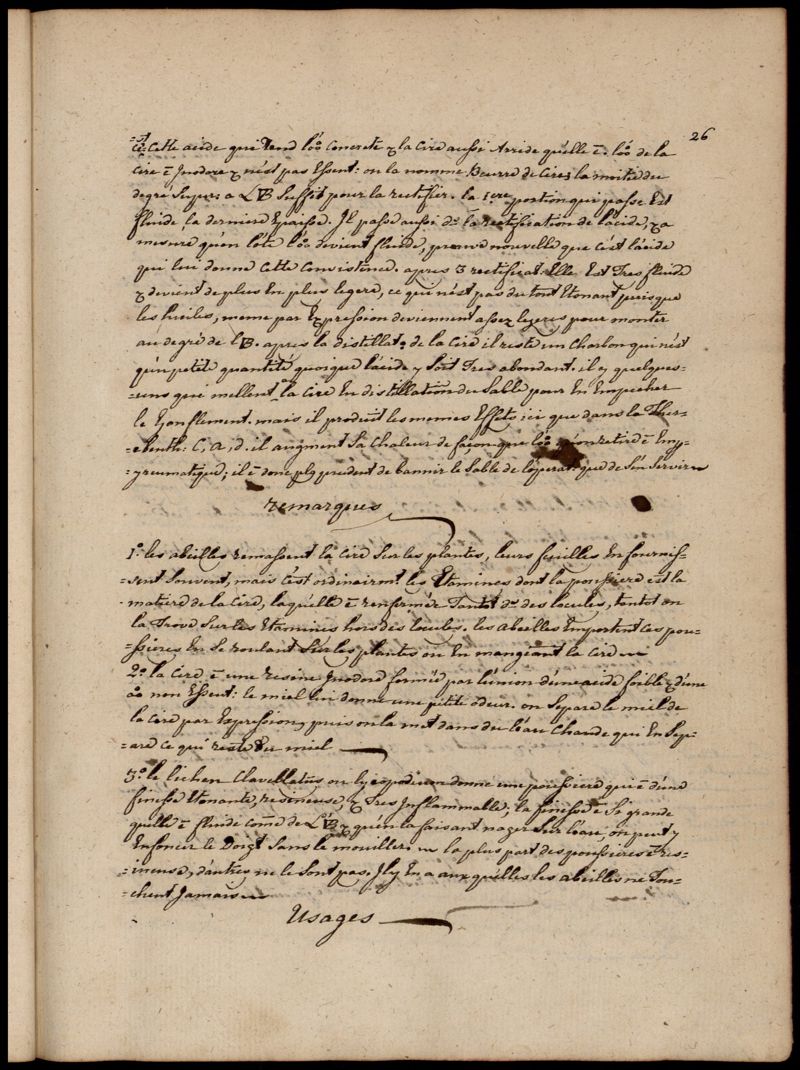 26
=ce: Cette acide qui Rend l'oo concrete & la cire aussi Arride quelle ē. l'oo de la
cire ē Jnodore & n'est pas Essent: on la nomme Beurre de cire; la moitié du
degré Super: a L'VB Suffit pour la rectifier. la 1ere portion qui passe Est
fluide, la derniere Epaisse. Jl passe aussi ds la rectification de l'acide, & a
mesure qu'on l'ôte l'oo devient fluide, preuve nouvelle que c'est l'acide
qui lui donne cette consistence. apres 3 rectificat: Elle Est Tres fluide
& devient de plus En plus legere, ce qui n'est pas du tout Etonant puisque
les huiles, meme par Expression deviennent assez legeres pour monter
au degré de l'VB. apres la distillat: de la cire il reste un charbon qui n'est
qu'en petite quantité quoique l'acide y Soit Tres abondant. il y quelques=
=uns qui mettent la cire En distillation du Sable pour En Empecher
le Gonflement. mais il produit les memes Effets ici que dans la Ther=
=ebenth: C, a, d. il augment Sa chaleur de façon que l'oo qu'on retire ē Emp=
=yreumatique; il ē donc plus prudent de bannir le Sable de l'operat: que de S'en Servir
remarques
1.° les abeilles remassent la cire Sur les plantes, leurs feuilles En fournis=
=sent Souvent, mais c'est ordinairemt. les Etamines dont la poussiere est la
matiere de la cire, laquelle ē renfermée Tantôt ds des locules, tantot on
la Trove Sur les Etamines hors des locules. les abeilles Emportent ces pou=
=ssieres En Se roulant Sur les plantes ou En mangeant la cire
2.° la cire ē une resine Jnodore formée par l'union d'une acide foible & d'une
oo non Essent: le miel lui donne une petite odeur. on Separe le miel de
la cire par Expression, puis on la met dans de l'eau chaude qui En Sep=
=are ce qui reste de miel
3.° le lichen Clavellatus ou lycopodium donne une poussiere qui ē d'une
finesse Etonante, resineuse, & Tres Jnflammable, la finesse ē Si grande
quelle ē fluide come de l'VB & qu'en la faisant nager Sur l'eau, on peut y
Enfoncer le Doigt Sans le mouiller. la plus part des poussieres ē res=
=ineuse, d'autres ne le Sont pas. Jl y En a auxquelles les abeilles ne Tou=
=chent Jamais
Usages